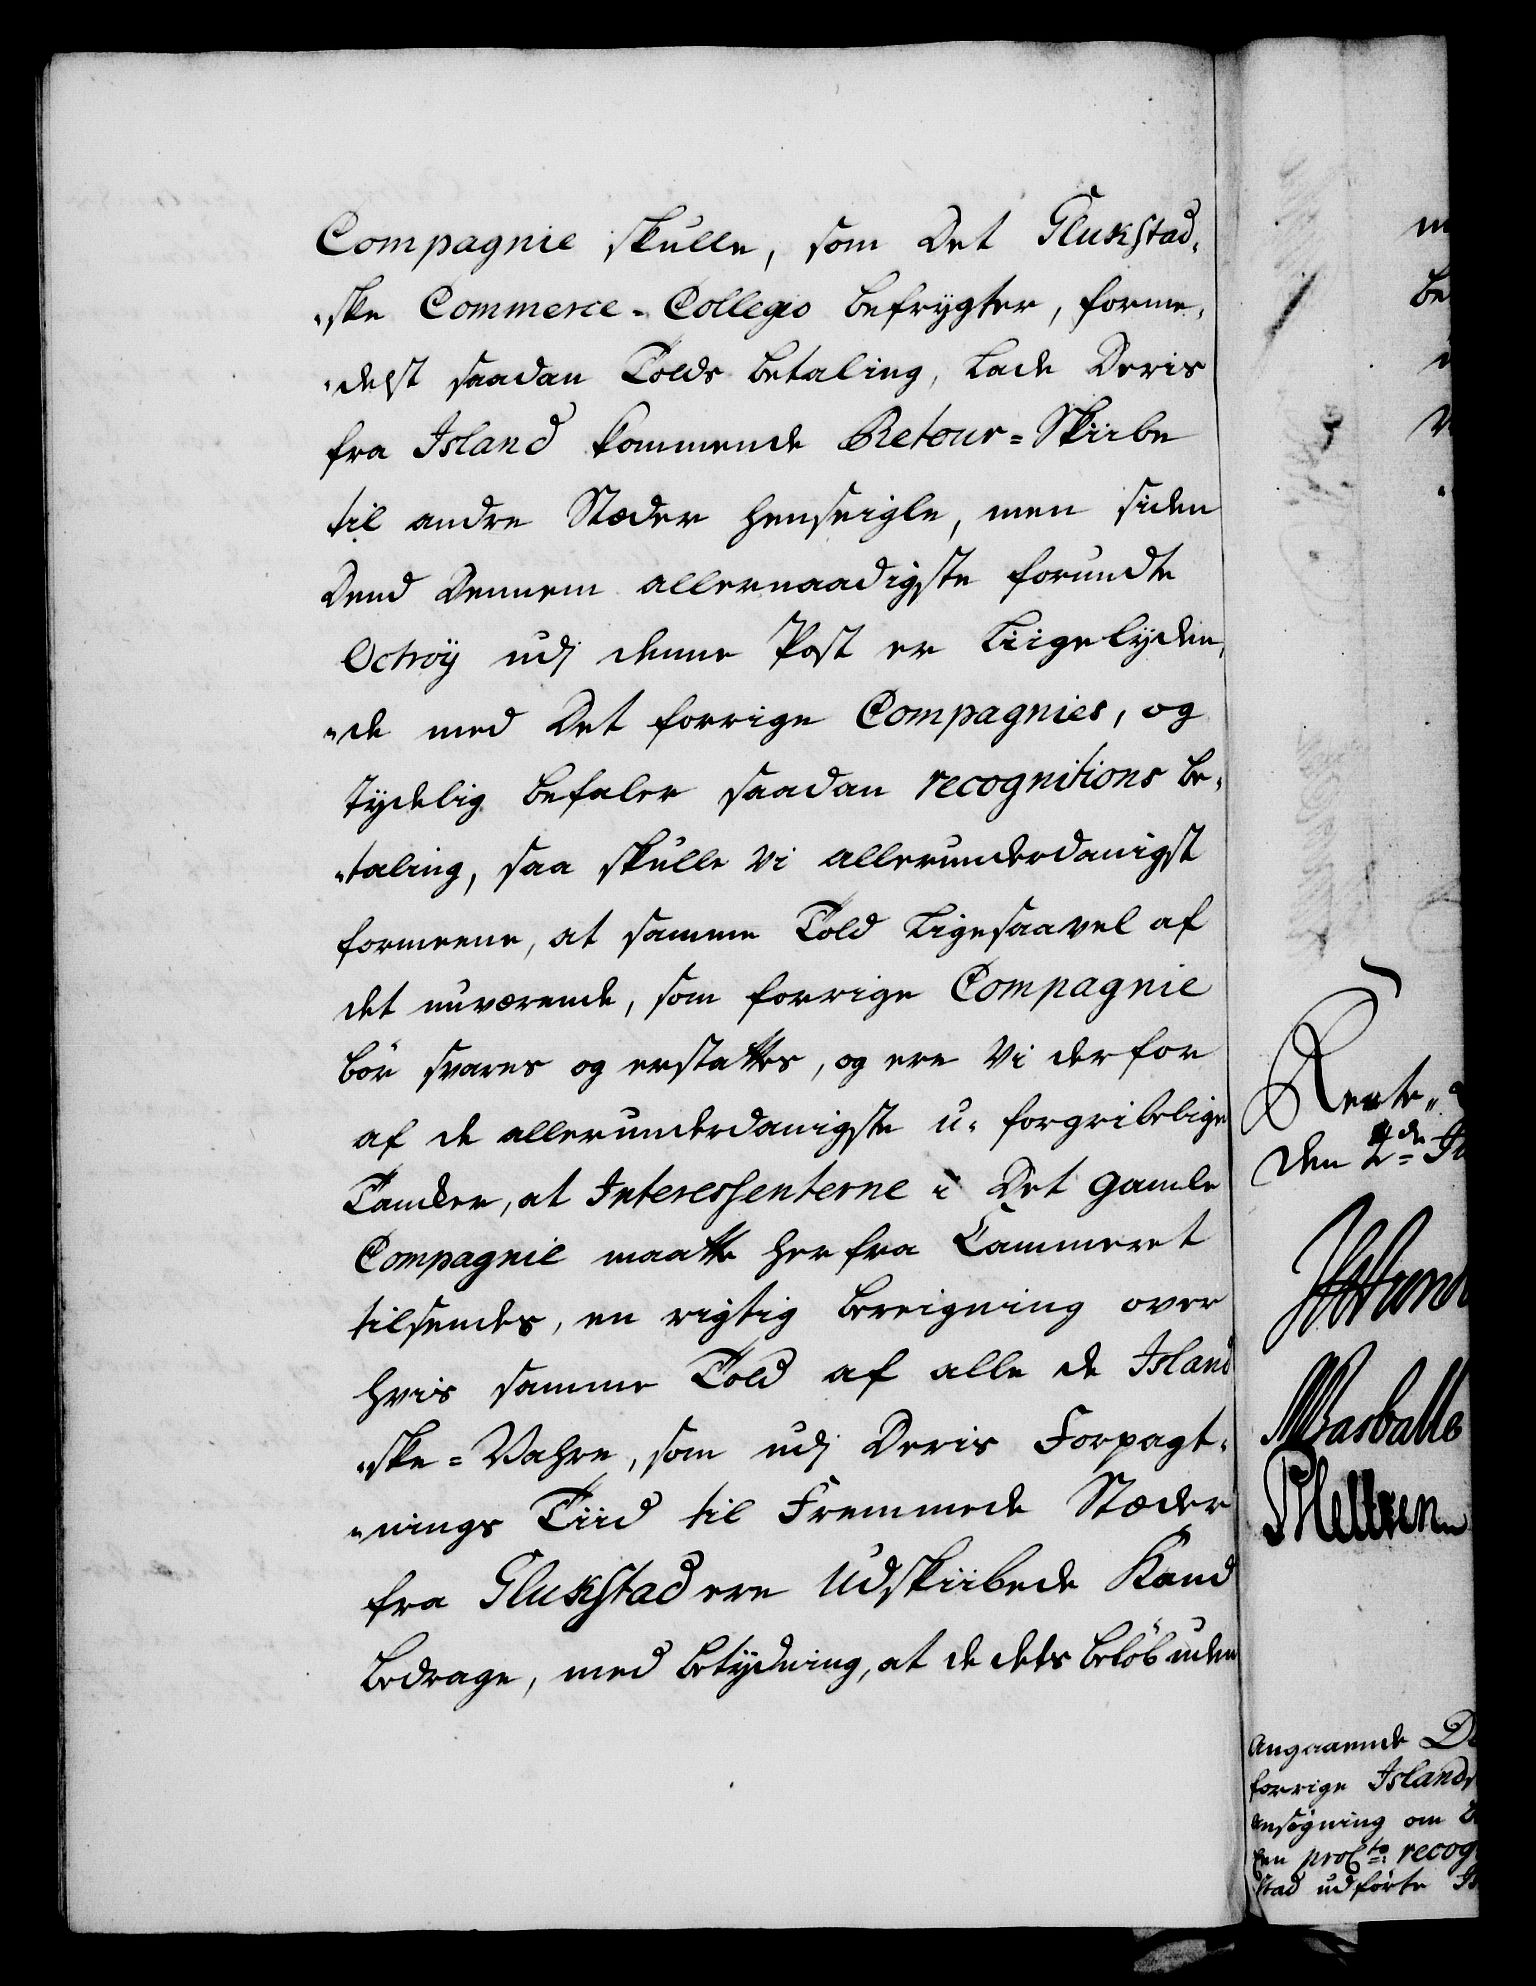 Compagnie skulle, som Det Glukstad„
„ske Commerce-Collegio befrygter, forme„
„delst saadan Tolds betaling, lade Deris
fra Island kommende Retour=Skiibe
til andre Stæder henseigle, men siden
Dend Dennem allernaadigste forundte
Octroÿ udj denne Post er liigelyden„
„de med Det forrige Compagnies, og
tydelig befaler saadan recognitions be„
„taling, saa skulle Vi allerunderdanigst
formeene, at samme Told ligesaavel af
det nuværende, som forrige Compagnie
bör svares og erstattes, og ere Vi derfor
af de allerunderdanigste u-forgribelige
Tancker, at Interessenterne i Det gamle
Compagnie maatte herfra Cammeret
tilsendes, en rigtig bereigning over
hvis samme Told af alle de Island
„ske=Vahre, som udj Deris Forpagt„
„nings Tiid til Fremmede Stæder
fra Glukstad ere Udskiibede Kand
bedrage, med betydning, at de dets belöb uden
Rente„
Den 2de
Angaaende
forrige Islands
ansögning om
pro Cto recog
stad udförte